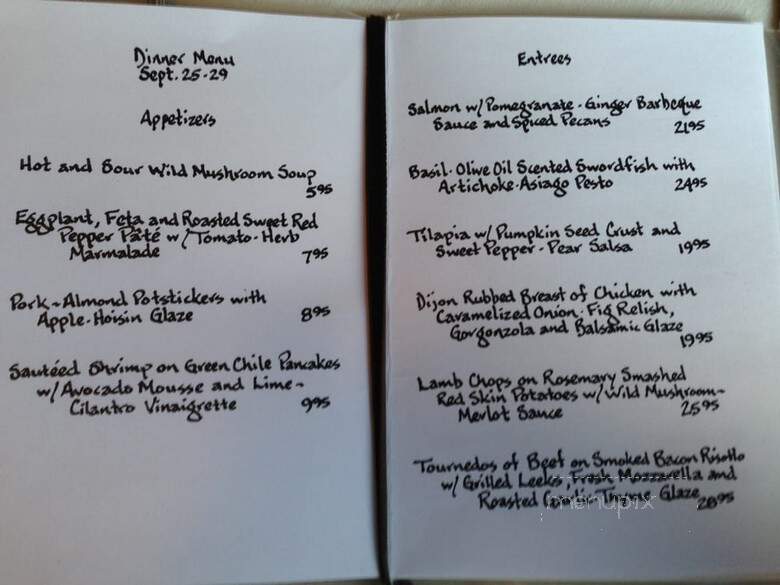 Dinner Menu
Sept. 25-29
Appetizers
Hot and Sour Wild Mushroom Soup
5.95
Eggplant, Feta and Roasted Sweet Red
Pepper Pâté w/Tomato-Herb
Marmalade 7.95
Pork-Almond Potstickers with
Apple-Hoisin Glaze 8.95
Sautéed Shrimp on Green Chile Pancakes
w/Avocado Mousse and Lime-
Cilantro Vinaigrette 9.95
Entrees
Salmon w/Pomegranate-Ginger Barbeque
Sauce and Spiced Pecans 21.95
Basil-Olive Oil Scented Swordfish with
Artichoke-Asiago Pesto 24.95
Tilapia w/Pumpkin Seed Crust and
Sweet Pepper-Pear Salsa 19.95
Dijon Rubbed Breast of Chicken with
Caramelized Onion-Fig Relish,
Gorgonzola and Balsamic Glaze
19.95
Lamb Chops on Rosemary Smashed
Red Skin Potatoes w/Wild Mushroom-
Merlot Sauce 25.95
Tournedos of Beef on Smoked Bacon Risotto
w/Grilled Leeks, Fresh Mozzarella and
Roasted Garlic-Thyme Glaze
menupix